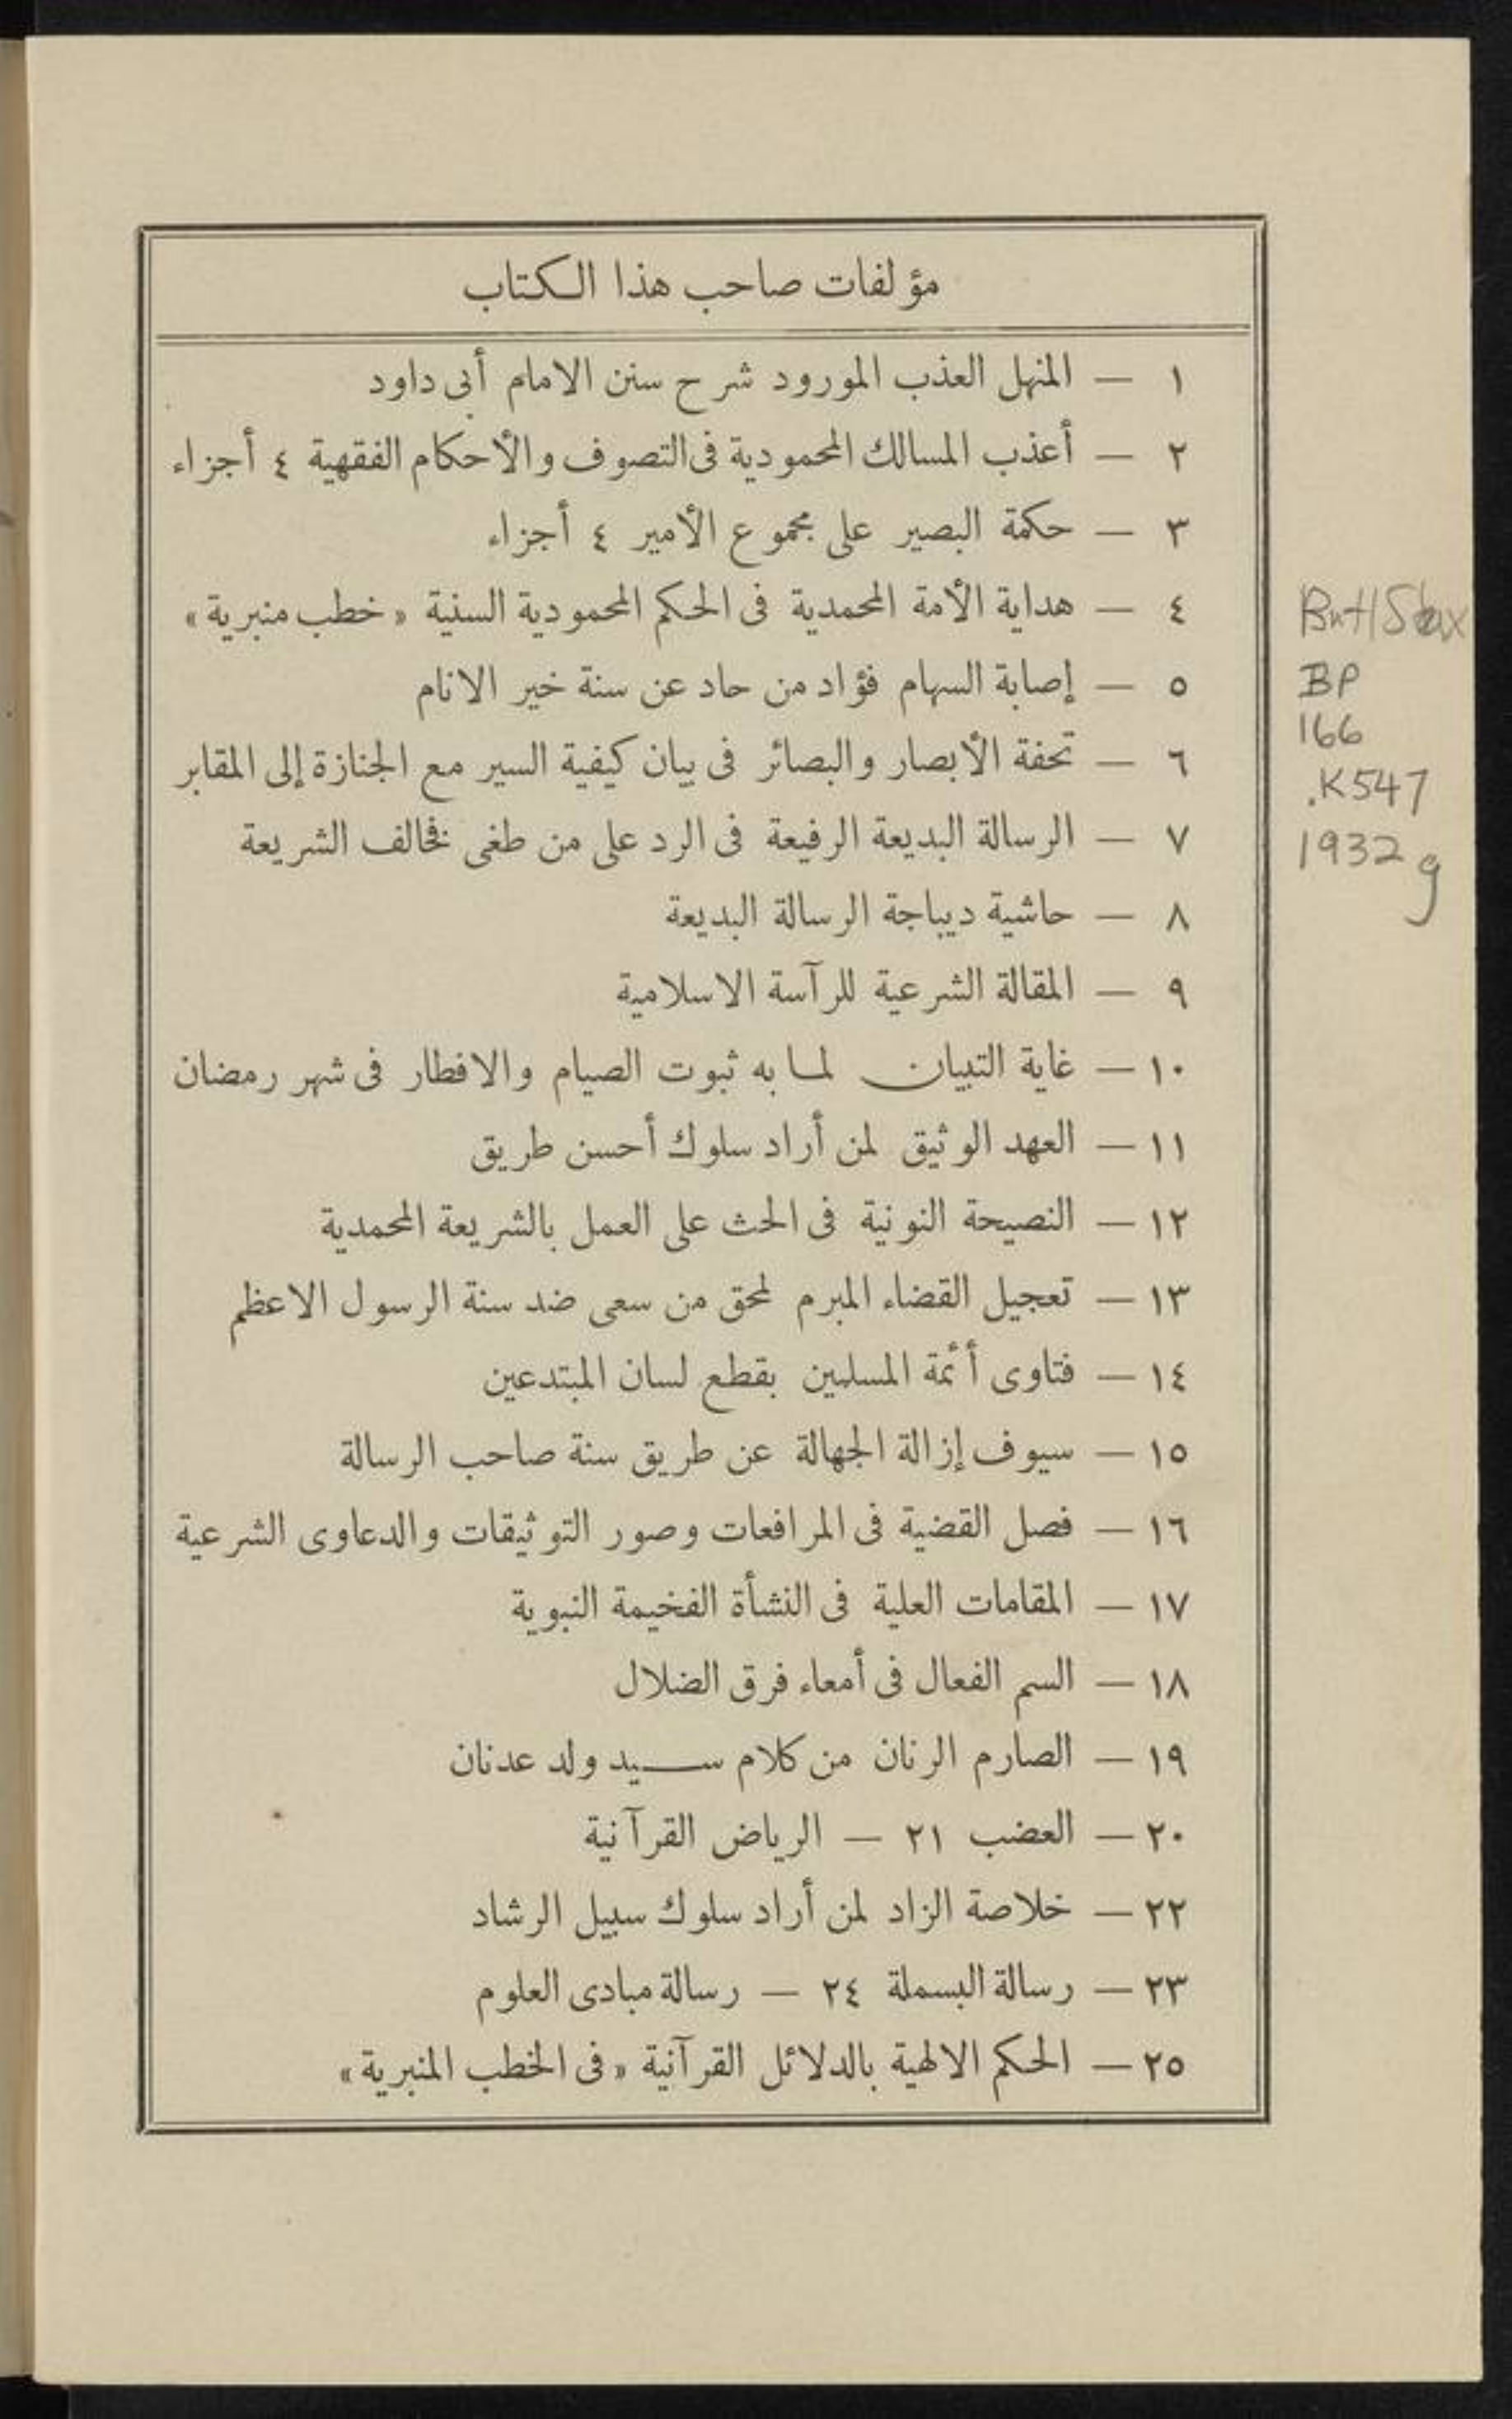 مؤلفات صاحب هذا الكتاب
١ — المنهل العذب المورود شرح سنن الامام أبى داود
٢ — أعذب المسالك المحمودية فى التصوف والأحكام الفقهية ٤ أجزاء
٣ — حكمة البصير على مجموع الأمير ٤ أجزاء
٤ — هداية الأمة المحمدية فى الحكم المحمودية السنية «خطب منبرية»
٥ — إصابة السهام فؤاد من حاد عن سنة خير الانام
٦ — تحفة الأبصار والبصائر فى بيان كيفية السير مع الجنازة إلى المقابر
٧ — الرسالة البديعة الرفيعة فى الرد على من طغى فخالف الشريعة
٨ — حاشية ديباجة الرسالة البديعة
٩ — المقالة الشرعية للرآسة الاسلامية
١٠ — غاية التبيان لما به ثبوت الصيام والافطار فى شهر رمضان
١١ — العهد الوثيق لمن أراد سلوك أحسن طريق
١٢ — النصيحة النونية فى الحث على العمل بالشريعة المحمدية
١٣ — تعجيل القضاء المبرم لمحق من سعى ضد سنة الرسول الاعظم
١٤ — فتاوى أئمة المسلمين بقطع لسان المبتدعين
١٥ — سيوف إزالة الجهالة عن طريق سنة صاحب الرسالة
١٦ — فصل القضية فى المرافعات وصور التوثيقات والدعاوى الشرعية
١٧ — المقامات العلية فى النشأة الفخيمة النبوية
١٨ — السم الفعال فى أمعاء فرق الضلال
١٩ — الصارم الرنان من كلام سيد ولد عدنان
٢٠ — العضب ٢١ — الرياض القرآنية
٢٢ — خلاصة الزاد لمن أراد سلوك سبيل الرشاد
٢٣ — رسالة البسملة ٢٤ — رسالة مبادى العلوم
٢٥ — الحكم الالهية بالدلائل القرآنية «فى الخطب المنبرية»
BP
166
.K547
1932g